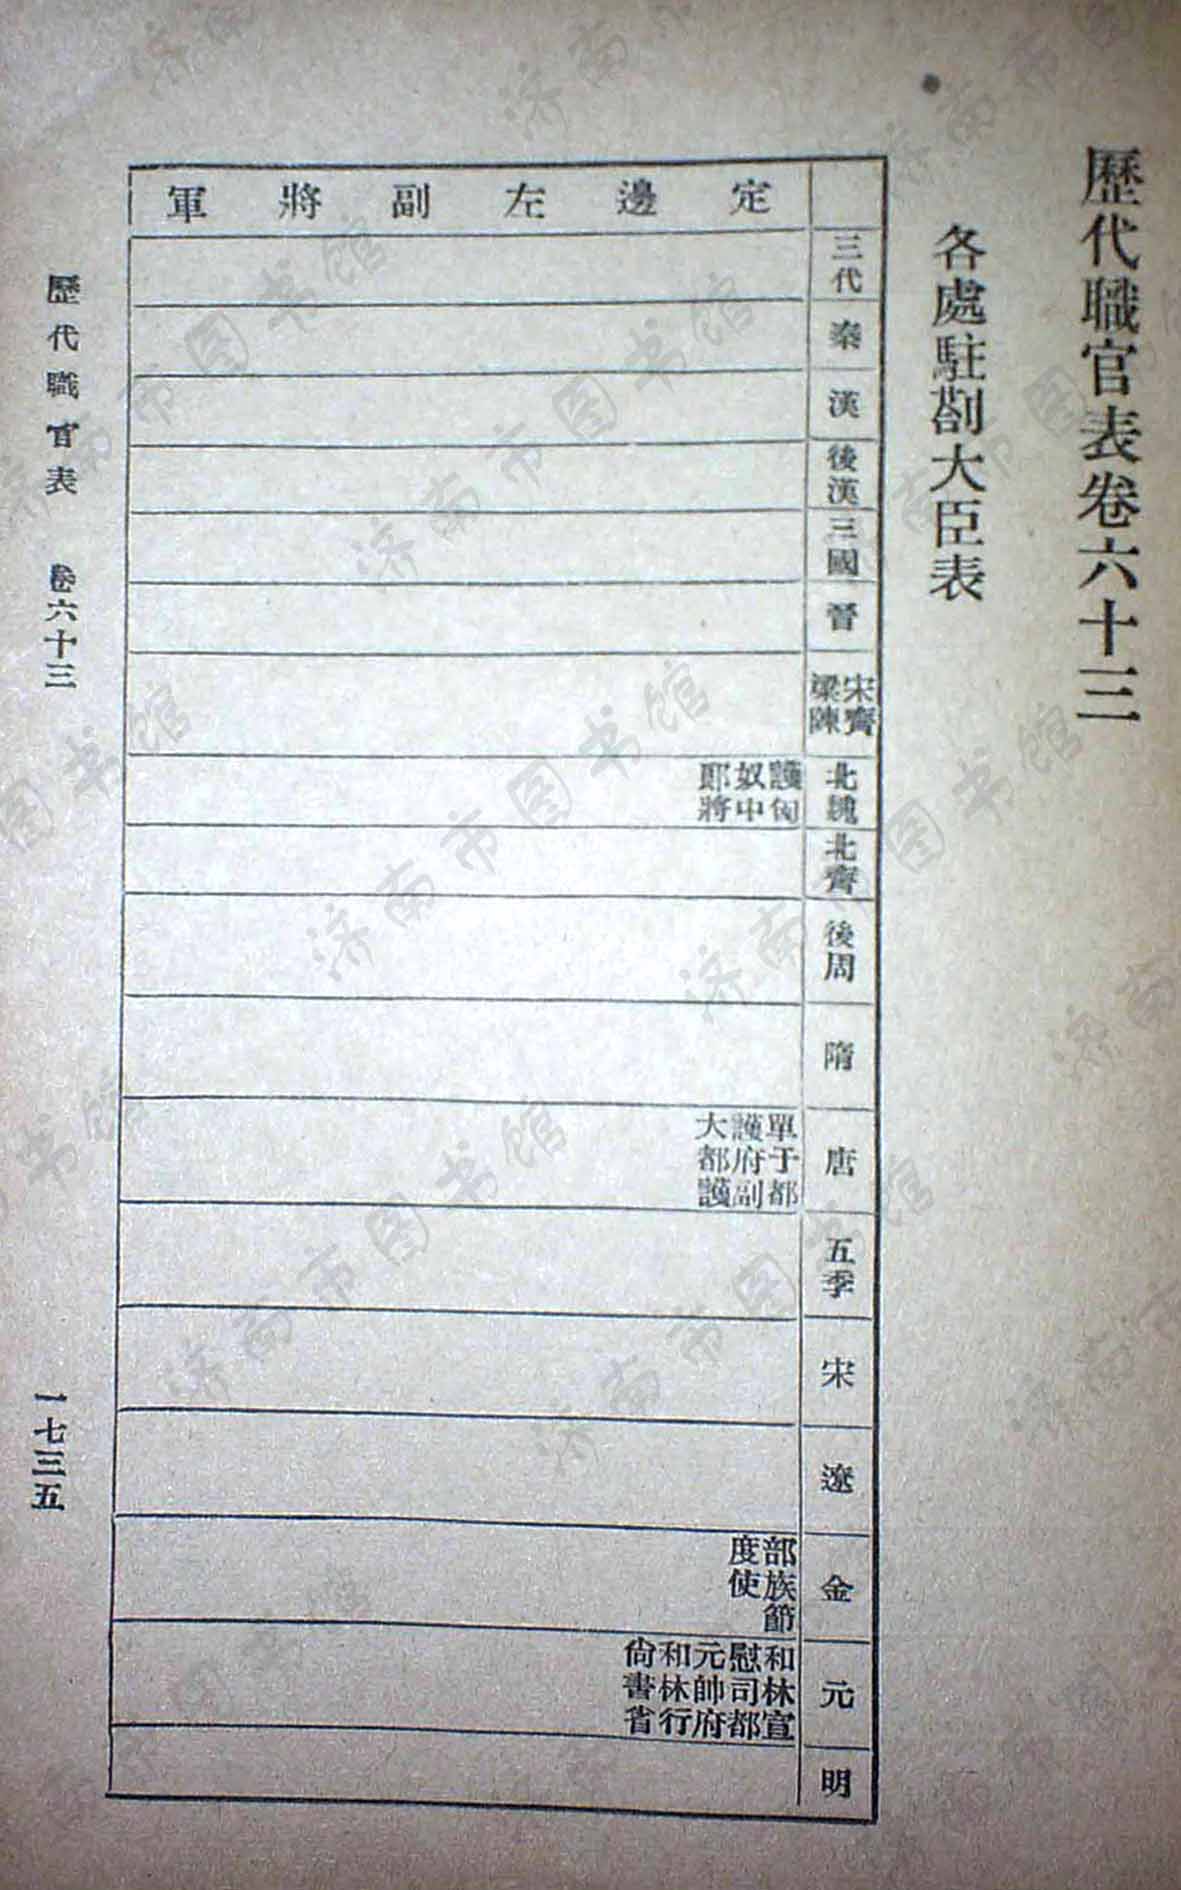 歷代職官表卷六十三
各處駐劄大臣表
定邊左副將軍
三代
秦
漢
後漢
三國
晉
宋齊
梁陳
北魏
護匈
奴中
郎將
北齊
後周
隋
唐
單于都
護府副
大都護
五季
宋
遼
金
部族節
度使
元
和林宣
慰司都
元帥府
和林行
尙書省
明
歷代職官表 卷六十三
一七三五
济南市图书馆